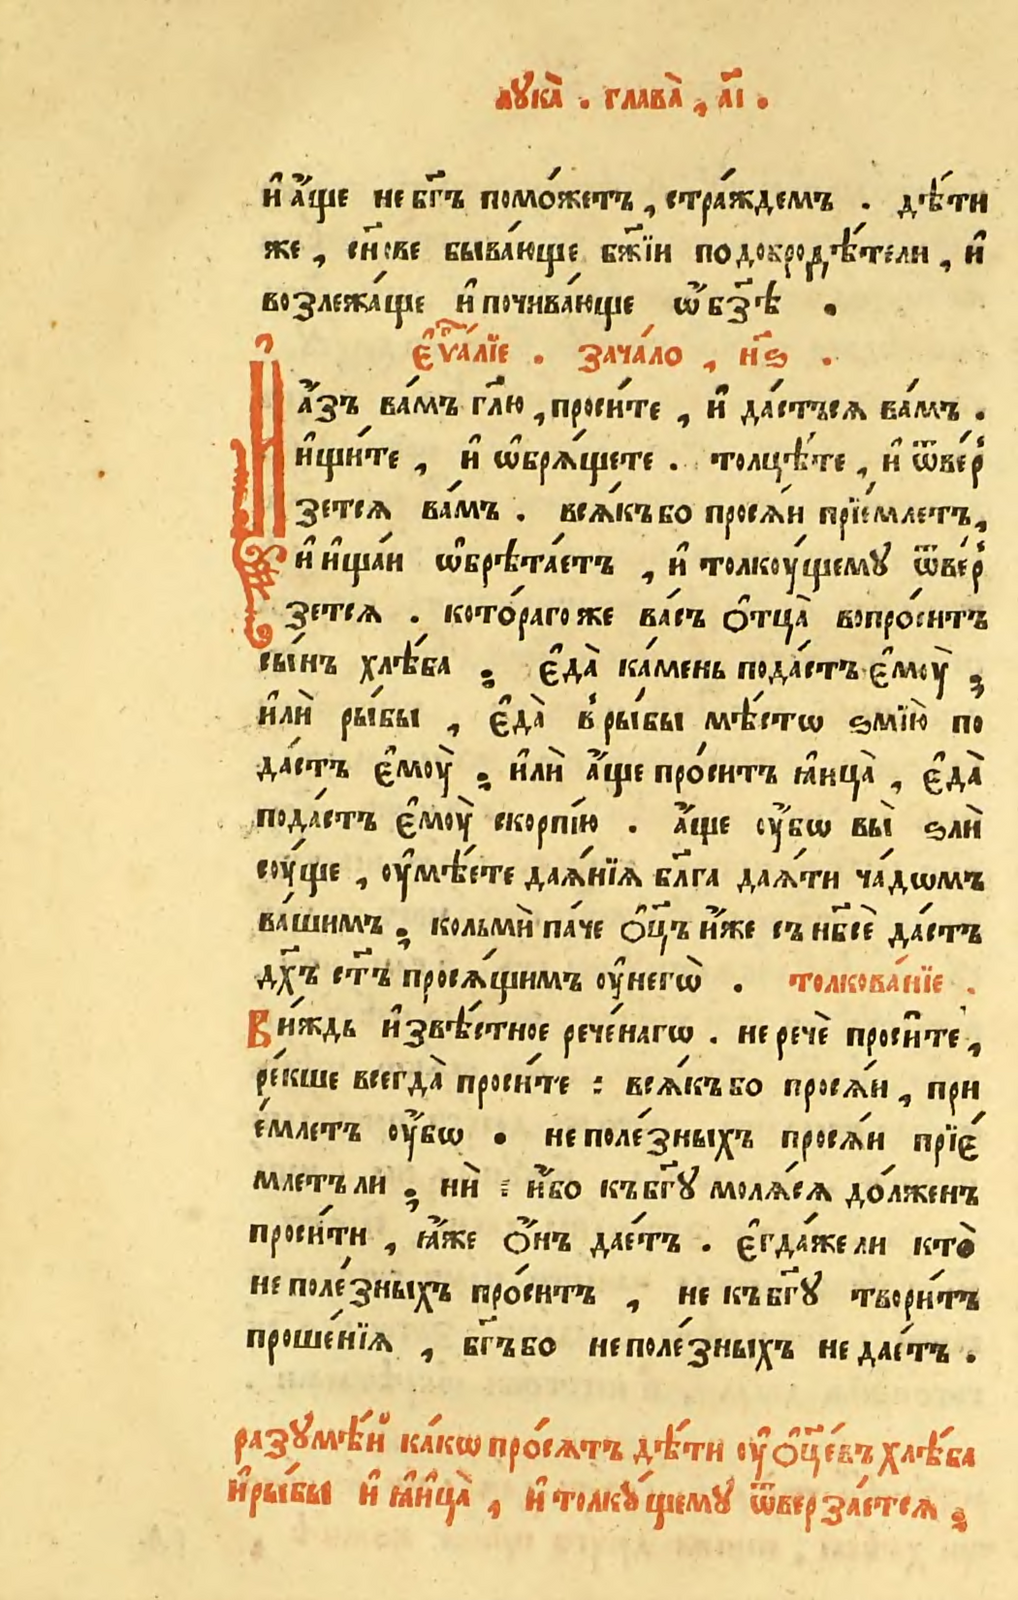 лꙋка̀ . глава̀ , а҃і .
и҆ а҆́ще не бг҃ъ помо́жетъ , стра́ждемъ . дѣ́ти
же , сн҃ове быва́юще бж҃їи по доброд̾ѣ́тели , и҆
возлежа́ще и҆ почива́юще ѡ҆ бз҃ѣ .
є҆ѵⷢ҇а́лїе . зача́ло , н҃ѕ .
И҆ а҆́зъ ва́мъ гл҃ю , проси́те , и҆ да́стъся ва́мъ .
и҆щи́те , и҆ ѡ҆бря́щете . толцѣ́те , и҆ ѿве́р
зетсѧ ва́мъ . всѧ́къ бо просѧ́и прїе́млетъ ,
и҆ и҆ща́и ѡ҆брѣта́етъ , и҆ толкоу́щемꙋ ѿве́р
зетсѧ . кото́раго же ва́съ ѻ҆тца̀ вопро́ситъ
сы́нъ хлѣ́ба ; є҆да̀ ка́мень пода́стъ є҆моу̀ ;
и҆лѝ ры́бы , є҆да̀ в̾ ры́бы мѣ́стѡ ѕмїю̀ по
да́стъ є҆моу̀ ; и҆лѝ а҆́ще про́ситъ ꙗ҆ица̀ , є҆да̀
пода́стъ є҆моу̀ скорпі́ю . а҆́ще оу҆́бѡ вы̀ ѕлѝ
соу́ще , оу҆мѣ́ете даѧ́нїѧ бл҃га даѧ́ти ча́дѡмъ
ва́шимъ , кольмѝ па́че ѻ҆ц҃ъ и҆́же съ нб҃сѐ да́стъ
дх҃ъ ст҃ъ просѧ́щимъ оу҆ негѡ̀ . толкова́нїе .
Ви́ждь и҆звѣ́стное рече́нагѡ . не речѐ проси̑те ,
ре́кше всегда̀ проси́те : всѧ́къ бо просѧ́и , при
е́млетъ оу҆́бѡ . не поле́зныхъ просѧ́и прїе́
млетъ ли ; нѝ : и҆́бо къ бг҃ꙋ молѧ́йсѧ до́лженъ
проси́ти , ꙗ҆́же ѻ҆́нъ дае́тъ . є҆гда́же ли кто̀
не поле́зныхъ про́ситъ , не къ бг҃ꙋ твори́тъ
проше́нїѧ , бг҃ъ бо не поле́зныхъ не дае́тъ .
разꙋмѣ́й ка́кѡ про́сѧтъ дѣ́ти оу҆ ѻ҆ц҃е́въ хлѣ́ба
и҆ ры́бы и҆ ꙗ҆и҆ца̀ , и҆ толкꙋ́щемꙋ ѿверза́етсѧ ;